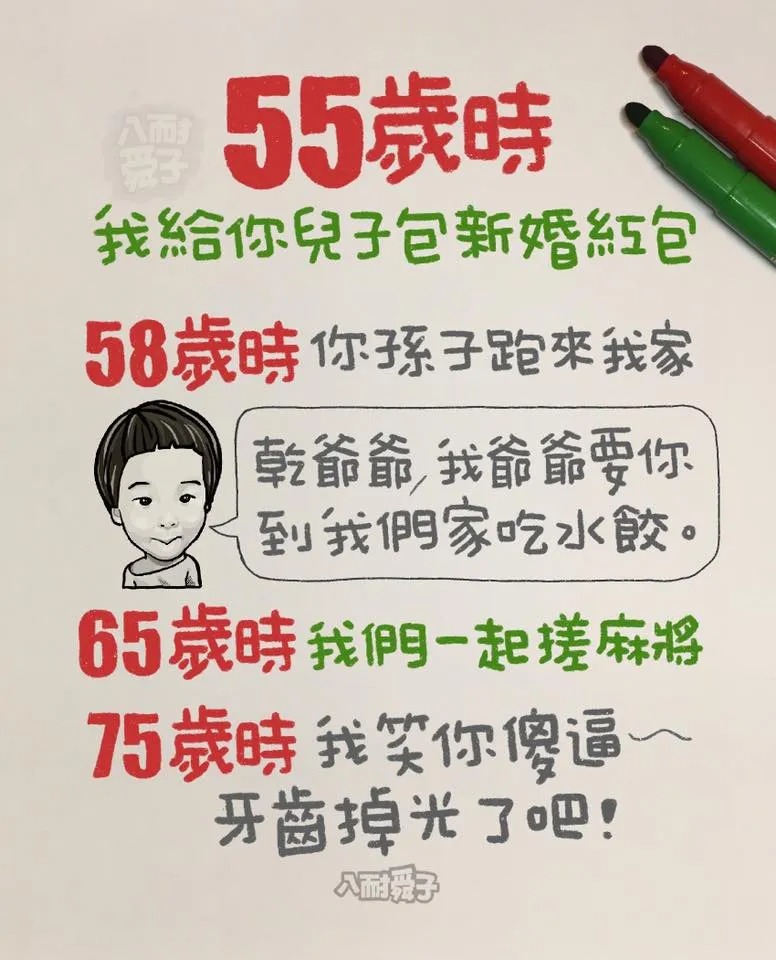 55歲時
八耐舜子
我給你兒子包新婚紅包
58歲時 你孫子跑來我家
乾爺爺,我爺爺要你
到我們家吃水餃。
65歲時 我們一起搓麻將
75歲時 我笑你傻逼~
牙齒掉光了吧!
八耐舜子